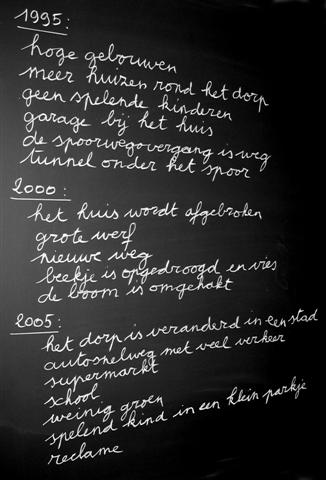 1995:
hoge gebouwen
meer huizen rond het dorp
geen spelende kinderen
garage bij het huis
de spoorwegovergang is weg
tunnel onder het spoor
2000:
het huis wordt afgebroken
grote werf
nieuwe weg
beekje is opgedroogd en vies
de boom is omgehakt
2005:
het dorp is veranderd in een stad
autosnelweg met veel verkeer
supermarkt
school
weinig groen
spelend kind in een klein parkje
reclame